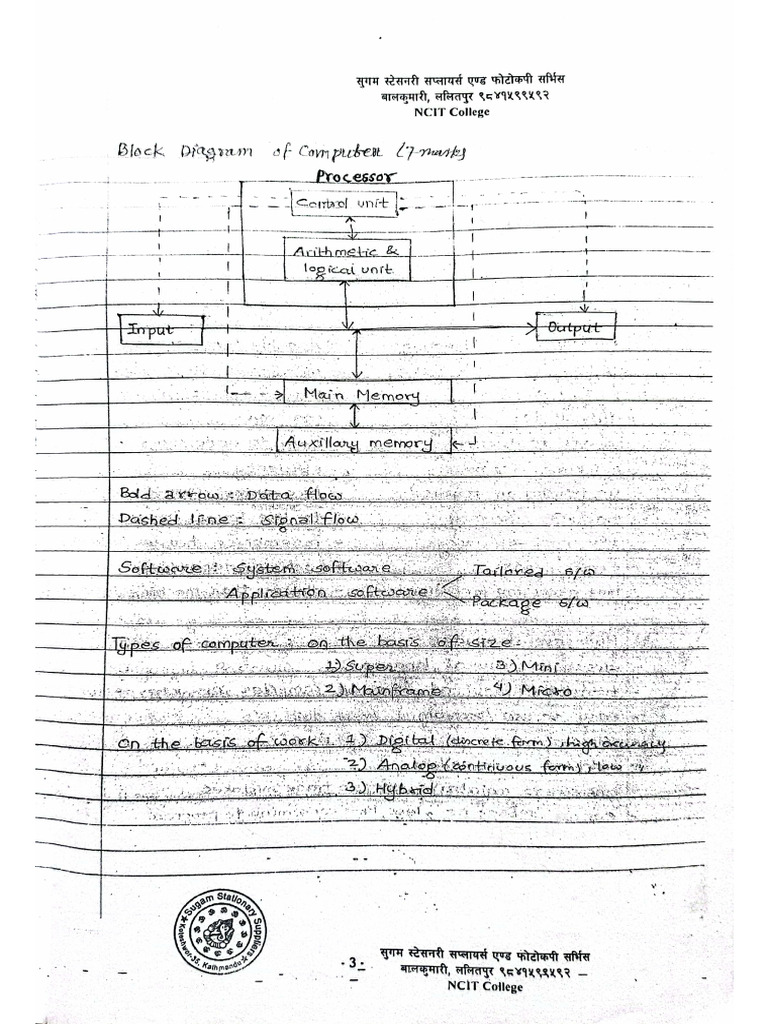 सुगम स्टेसनरी सप्लायर्स एण्ड फोटोकपी सर्भिस
बालकुमारी, ललितपुर ९८४१५९९५९२
NCIT College
Block Diagram of Computer (7 marks)
Processor
Control unit
Arithmetic &
logical unit
Input
Output
Main Memory
Auxillary memory
Bold arrow : Data flow
Dashed line : signal flow
Software : System software
Tailored s/w
Application software
Package s/w
Types of computer : on the basis of size.
1) Super 3) Mini
2) Mainframe 4) Micro
On the basis of work : 1) Digital (discrete form), high accuracy
2) Analog (continuous form), low "
3) Hybrid
Sugam Stationary Suppliers
Koteshwor-35, Kathmandu
- 3 -
सुगम स्टेसनरी सप्लायर्स एण्ड फोटोकपी सर्भिस
बालकुमारी, ललितपुर ९८४१५९९५९२
NCIT College